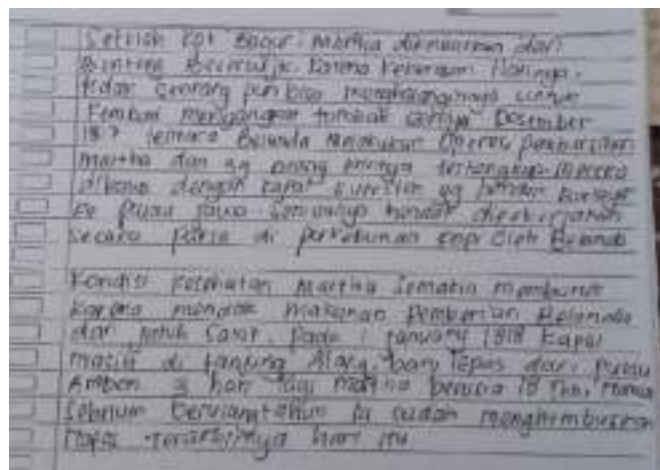 Setelah Kot Bogur Martha dikeluarkan dari
Benteng Beverwijk. Karena Keberanian Hatinya,
tidak seorang pun bisa menghalanginya untuk
Kembali mengangkat tombak Desember
187 tentara Belanda melakukan Operasi pembersihan
Martha dan 39 orang lainnya tertangkap mereka
dibawa dengan kapal Evertsen yg berlayar
Ke pulau jawa semuanya hendak
secara paksa di perkebunan kopi oleh Belanda
Kondisi kesehatan Martha semakin memburuk
Karena menolak makanan Pemberian Belanda
dan jatuh sakit. Pada 1 january 1818 Kapal
masih di tanjung Alang, baru lepas dari Pulau
Ambon 3 hari lagi Martha berusia 18 Thn, namun
sebelum berulangtahun ia sudah menghembuskan
Nafas terakhirnya hari itu